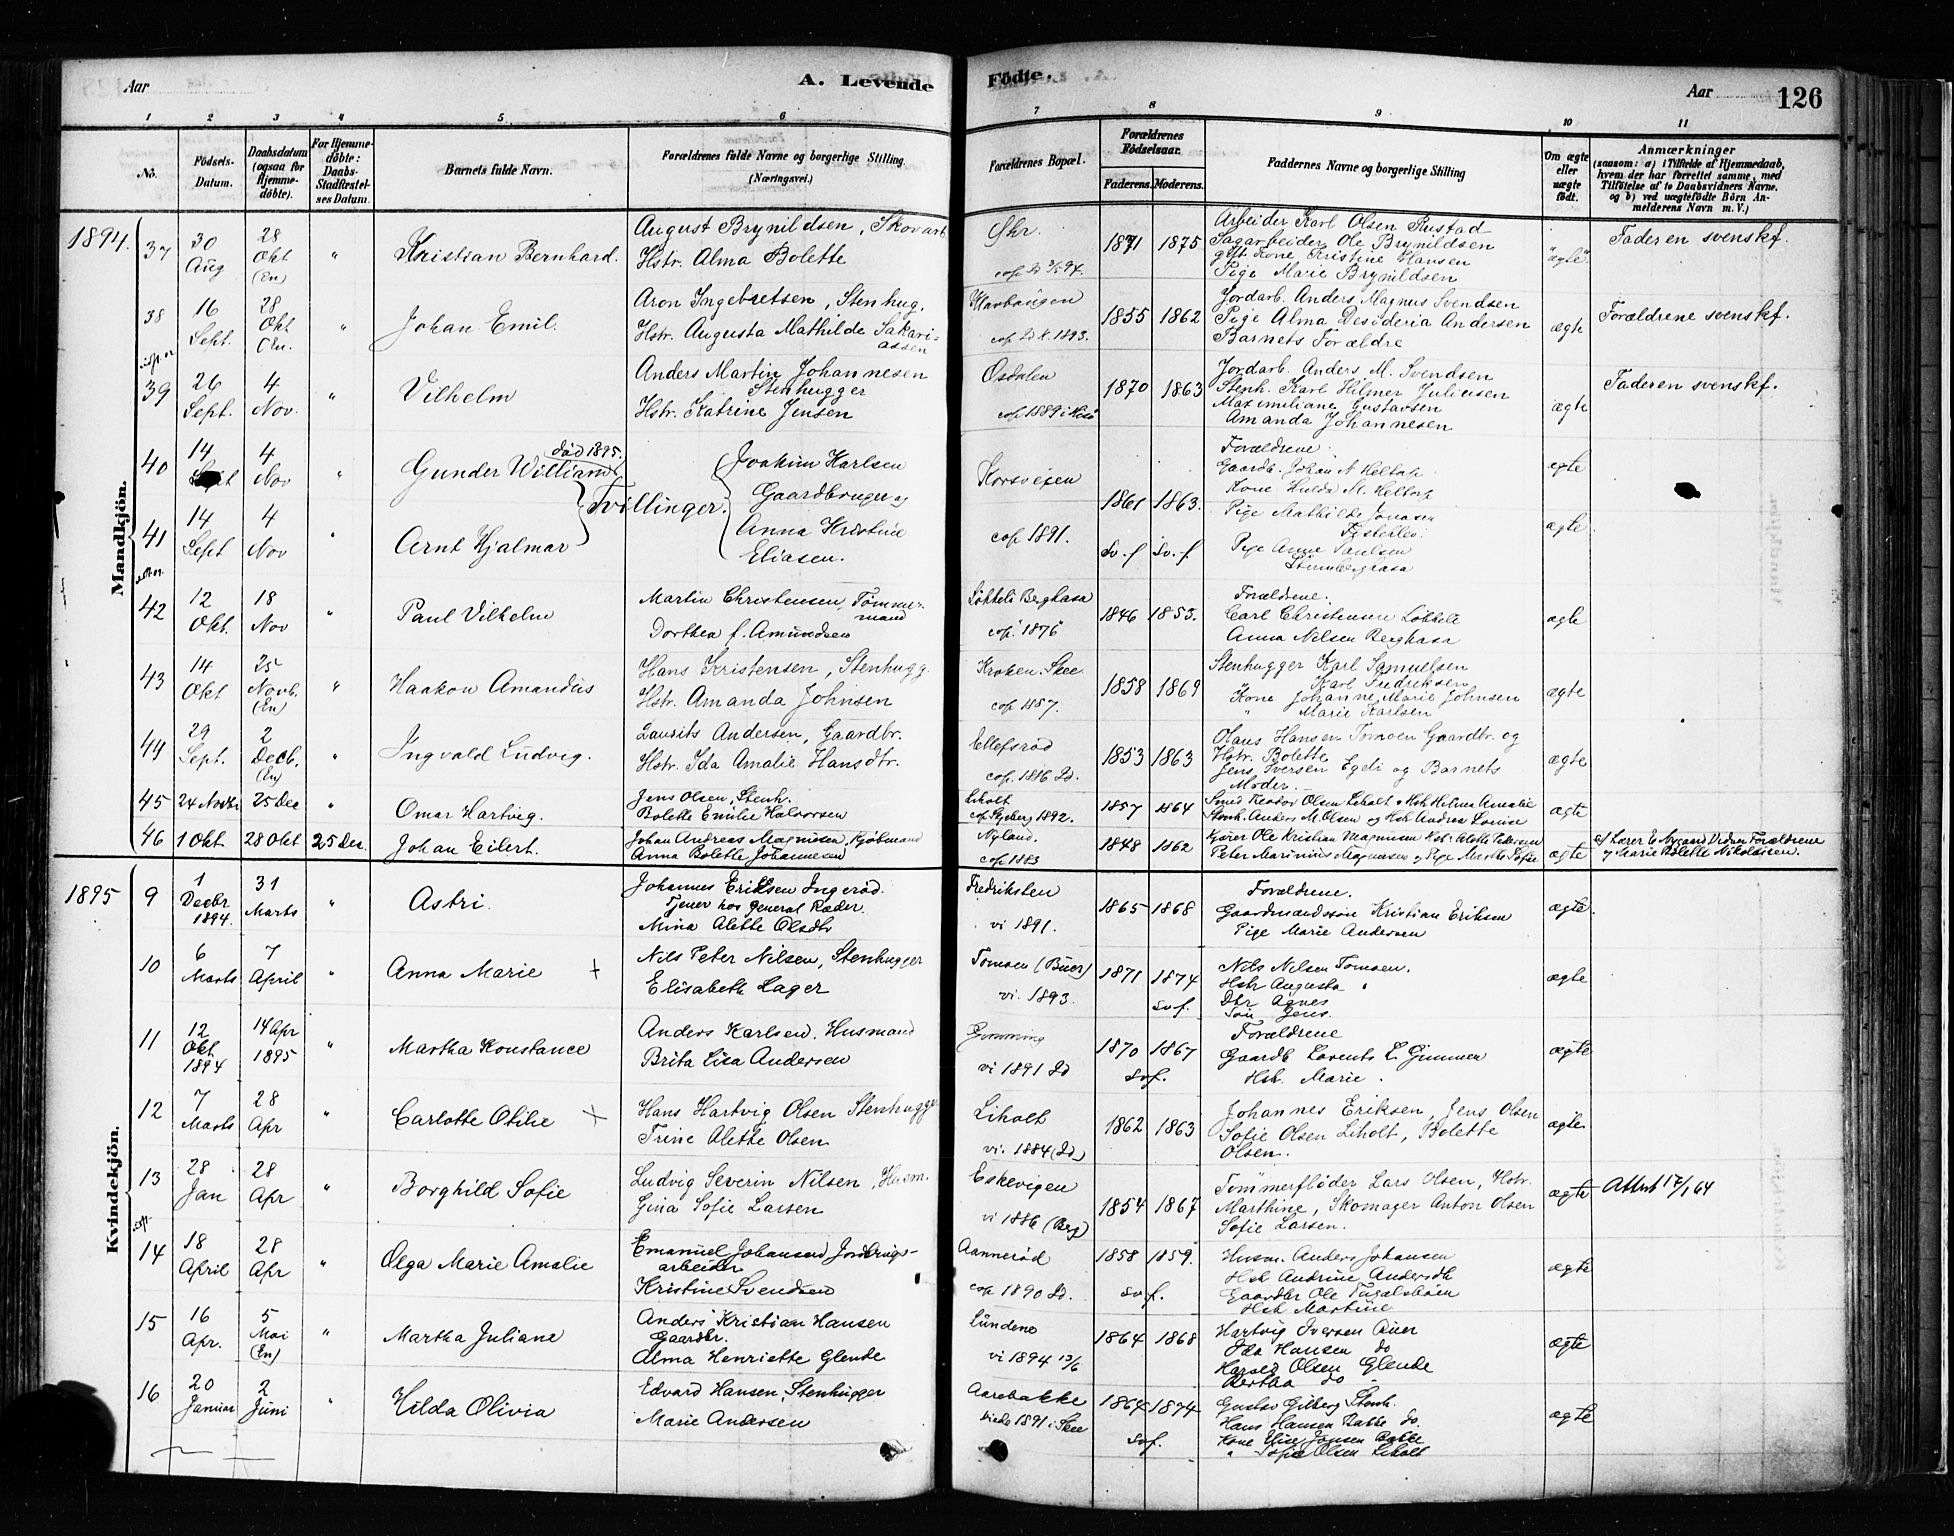 Aar
A. Levende
Födte.
Aar
126
1 2 3 4 5 6 7 8 9 10 11
No.
Födsels-Datum.
Daabsdatum (ogsaa for Hjemme-döbte).
For Hjemme-döbte: Daabs-Stadfæstel-ses Datum.
Barnets fulde Navn.
Forældrenes fulde Navne og borgerlige Stilling.
(Næringsvei.)
Forældrenes Bopæl.
Forældrenes Födselsaar.
Faderens. Moderens.
Faddernes Navne og borgerlige Stilling
Om ægte eller uægte födt.
Anmærkninger
(saasom: a) i Tilfælde af Hjemmedaab, hvem der har forrettet samme, med Tilföielse af to Daabsvidners Navne. og b) ved uægtefödte Börn An-melderens Navn m. V.)
Mandkjön.
1894.
37 30 Aug 28 Okt (En) " Kristian Bernhard.
August Brynildsen, Skovarb
Hstr. Alma Bolette
1871 1875
Arbeider Karl Olsen Rustad
Sagarbeider Ole Brynildsen
gift Kone Kristine Hansen
Pige Marie Brynildsen
"ægte"
Faderen svensk f.
38 16 Sept. 28 Okt En. " Johan Emil.
Aron Ingebretsen, Stenhug.
Hstr. Augusta Mathilde Sakari-assen
cop Id k. 1893.
1855 1862
Jordarb. Anders Magnus Svendsen
Pige Alma Desideria Andersen
Barnets Forældre
ægte
Forældrene svensk f.
39 26 Sept. 4 Nov. " Vilhelm
Anders Martin Johannesen
Stenhugger
Hstr. Katrine Jensen
Osdalen
1870 1863
Jordarb. Anders M. Svendsen
Stenh. Karl Hilmer Juliusen
Maximiliane Gustavsen
Amanda Johannesen
ægte
Faderen svensk f.
40 14 Sept 4 Nov " Gunder William død 1895.
Tvillinger.
Joakim Karlsen
Gaardbruger og
Anna Kristine
Eliasen.
Korsvejen
cop 1891.
1861 1863.
Sv. f. Sv. f.
Forældrene.
Gaardb. Johan N Heltorp
Kone Hulda M. Heltorp
Pige Mathilde Jonasen
Pige Anne Paulsen
ægte
41 14 Sept 4 Nov " Arnt Hjalmar
ægte
42 12 Okt. 18 Nov " Paul Vilhelm
Martin Christensen, Tømmer-mand
Dorthea f. Amundsen
Løkkeli Berghasa
cop. 1876
1846 1853.
Forældrene.
Carl Christensen Løkkeli
Anna Nilsen Berghasa
ægte
43 14 Okt 25 Novb. (En) " Haakon Amandus
Hans Kristensen, Stenhugg.
Hstr. Amanda Johnsen
Kroken. Skee
cop 1857.
1858 1869
Stenhugger Karl Samuelsen
" Karl Fredriksen
Kone Johanne Marie Johnsen
" Marie Karlsen
ægte
44 29 Sept. 2 Decb. (En) " Ingvald Ludvig.
Laurits Andersen, Gaardbr.
Hstr. Ida Amalie Hansdtr.
Ellefsrød
cop. 1886 Id.
1853 1863
Olaus Hansen Tomoen Gaardbr. og
Hstr. Bolette
Jens Iversen Egeli og Barnets
Moder.
ægte
45 24 Novbr 25 Dec " Omar Hartvig.
Jens Olsen, Stenh.
Bolette Emilie Halvorsen
Liholt
1857 1864
Smed Teodor Olsen Liholt & Hst Helma Amalie
Stenh. Anders M. Olsen og Hst Andrea Louise
ægte
46 1 Okt. 28 Okt 25 Dec. Johan Eilert.
Johan Andreas Magnusen, Kjøbmand
Anna Bolette Johannesen
Nyland.
cop 1883
1848 1862
Kjører Ole Kristian Magnusen Hst. Alette Pedersen
Peter Marinius Magnusen og Pige Marthe Sofie
ægte
af Lærer E. Nygaard Vidner Forældrene
og Marie Bolette Nikolaisen.
Kvindekjön.
1895
9 1 Decbr 1894. 31 Marts " Astri.
Johannes Eriksen Ingerød.
Tjener hos General Ræder.
Mina Alette Olsdtr
Fredriksten
vi 1891.
1865 1868
Forældrene.
Gaardmandssøn Kristian Eriksen
Pige Marie Andersen
ægte
10 6 Marts 7 April " Anna Marie +
Nils Peter Nilsen, Stenhugger
Elisabeth Lager
Tomoen (Buer)
vi. 1893.
1871 1874
sv f.
Nils Nilsen Tomoen.
Hst Augusta "
Dtr Agnes
Søn Jens.
ægte
11 12 Okt 1894 14 Apr 1895 " Martha Konstance
Anders Karlsen. Husmand
Brita Lisa Andersen
vi 1891 Id
1870 1867
sv f.
Forældrene
Gaardb Lorents L. Gimmen
Hst. Marie.
ægte
12 7 Marts 28 Apr " Carlotte Otilie +
Hans Hartvig Olsen Stenhugger
Trine Alette Olsen
Liholt
vi. 1884 (Id)
1862 1863
Johannes Eriksen, Jens Olsen
Sofie Olsen Liholt, Bolette
Olsen.
ægte
13 28 Jan 28 Apr " Borghild Sofie
Ludvig Severin Nilsen, Husm.
Gina Sofie Larsen
Eskevigen
vi 1886 (Berg)
1854 1867
Tømmerfløder Lars Olsen, Hstr.
Marthine, Skomager Anton Olsen
Sofie Larsen.
ægte
Attest 17/1 64
14 18 April 28 Apr " Olga Marie Amalie
Emanuel Johansen Jordbrugs-arbeider
Kristine Svendsen
Aannerød
cop 1890 Id.
1858 1859.
sv f.
Husm. Anders Johansen
Hst Andrine Andersdtr
Gaardbr Ole Fugelsbøen
Hst Martine
ægte
15 16 Apr. 5 Mai (En) " Martha Juliane
Anders Kristian Hansen
Gaardbr.
Alma Henriette Glende
Lundene
vi 1894 13/6
1864 1868
Hartvig Iversen Buer
Ida Hansen do
Harald Olsen Glende
Bertha do
ægte
16 20 Januar 2 Juni " Hilda Olivia
Edvard Hansen, Stenhugger
Marie Andersen
Aarebakke
viede 1891 i Skee
1864 1874
sv f.
Gustav Gilberg Stenh.
Hans Hansen Bakke do.
Kone Elise Jonsen Bakke
" Sofie Olsen Liholt
ægte